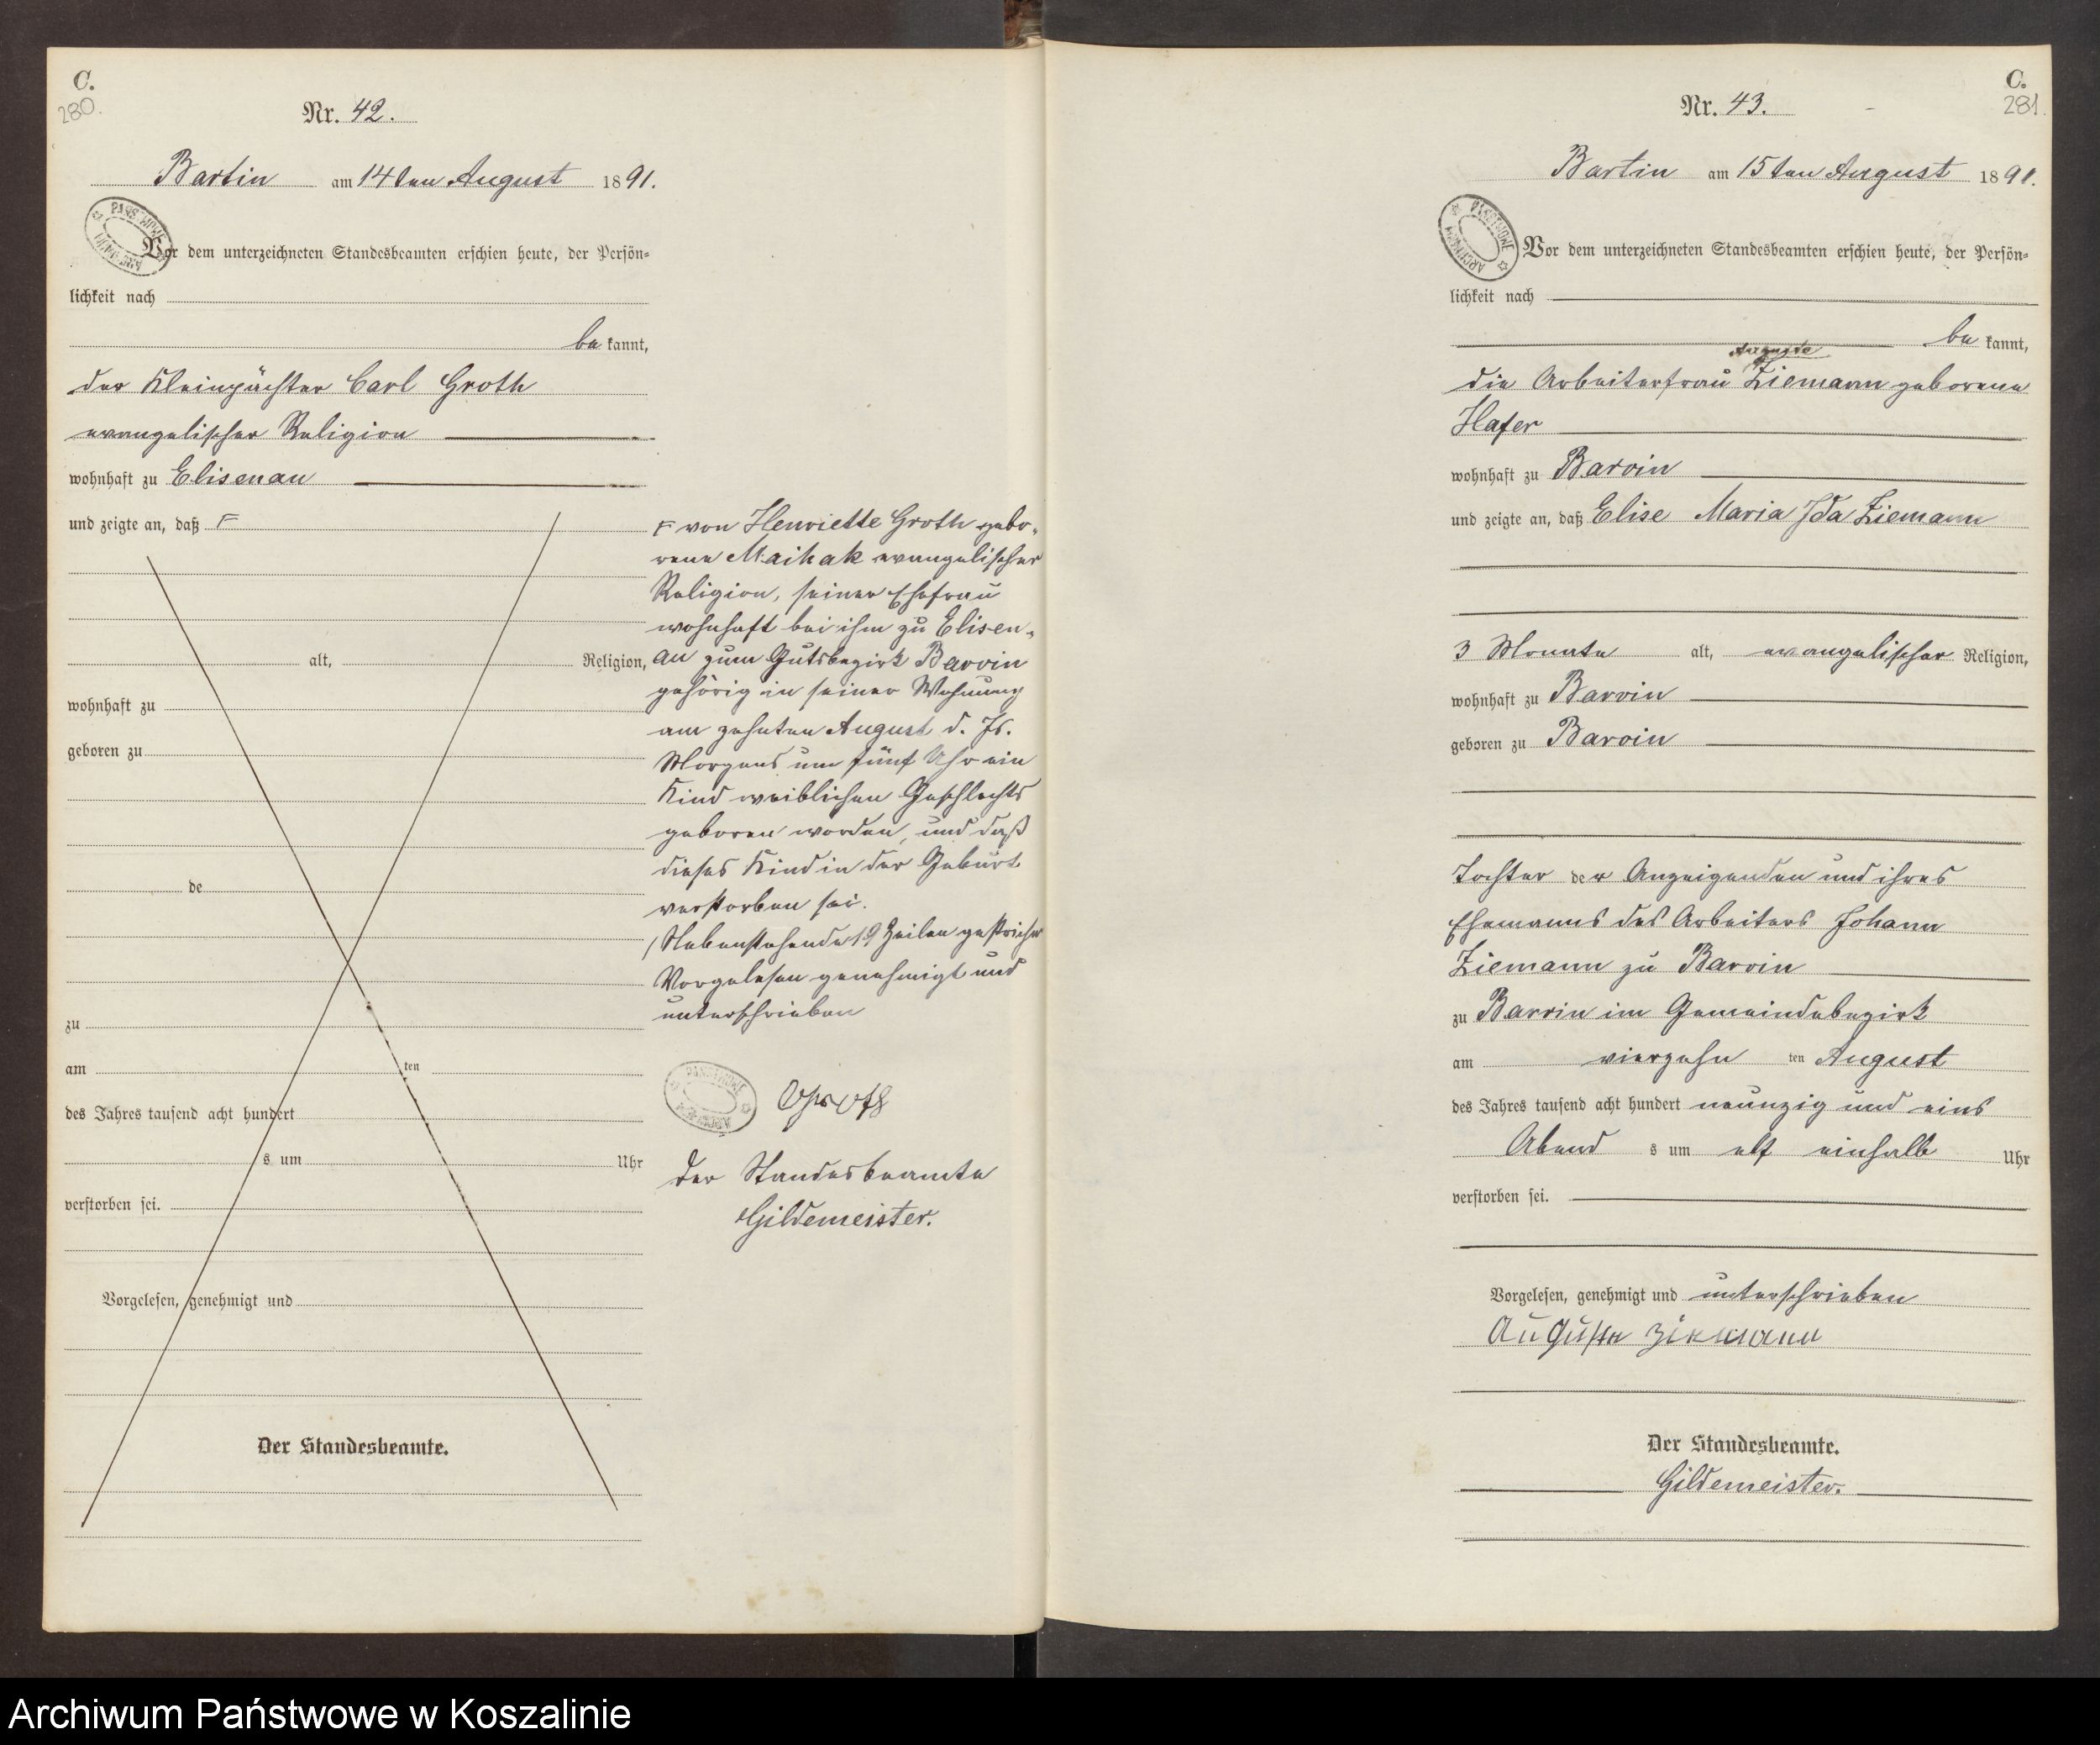 C.
280.
Nr. 42.
Bartin am 14ten August 1891.
Vor dem unterzeichneten Standesbeamten erschien heute, der Persön-
lichkeit nach
bekannt,
der Kleinpächter Carl Groth
evangelischer Religion
wohnhaft zu Elisenau
und zeigte an, daß
alt, Religion,
wohnhaft zu
geboren zu
de
zu
am ten
des Jahres tausend acht hundert
s um Uhr
verstorben sei.
Vorgelesen, genehmigt und
Der Standesbeamte.
von Henriette Groth gebo-
rene Maihak evangelischer
Religion, seiner Ehefrau
wohnhaft bei ihm zu Elisen-
au zum Gutsbezirk Barvin
gehörig in seiner Wohnung
am zehnten August d. Js.
Morgens um fünf Uhr ein
Kind weiblichen Geschlechts
geboren worden, und daß
dieses Kind in der Geburt
verstorben sei.
Nebenstehende 19 Zeilen gestrichen
Vorgelesen genehmigt und
unterschrieben
Groth
Der Standesbeamte
Gildemeister.
C.
281.
Nr. 43.
Bartin am 15ten August 1891.
Vor dem unterzeichneten Standesbeamten erschien heute, der Persön-
lichkeit nach
bekannt,
Auguste
die Arbeiterfrau Ziemann geborene
Hafer
wohnhaft zu Barvin
und zeigte an, daß Elise Maria Ida Ziemann
3 Monate alt, evangelischer Religion,
wohnhaft zu Barvin
geboren zu Barvin
Tochter der Anzeigenden und ihres
Ehemanns des Arbeiters Johann
Ziemann zu Barvin
zu Barvin im Gemeindebezirk
am vierzehn ten August
des Jahres tausend acht hundert neunzig und eins
Abend s um elf einhalb Uhr
verstorben sei.
Vorgelesen, genehmigt und unterschrieben
Auguste Ziemann
Der Standesbeamte.
Gildemeister.
Archiwum Państwowe w Koszalinie